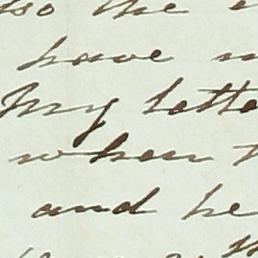 so the
have
My lette
when t
and he
th